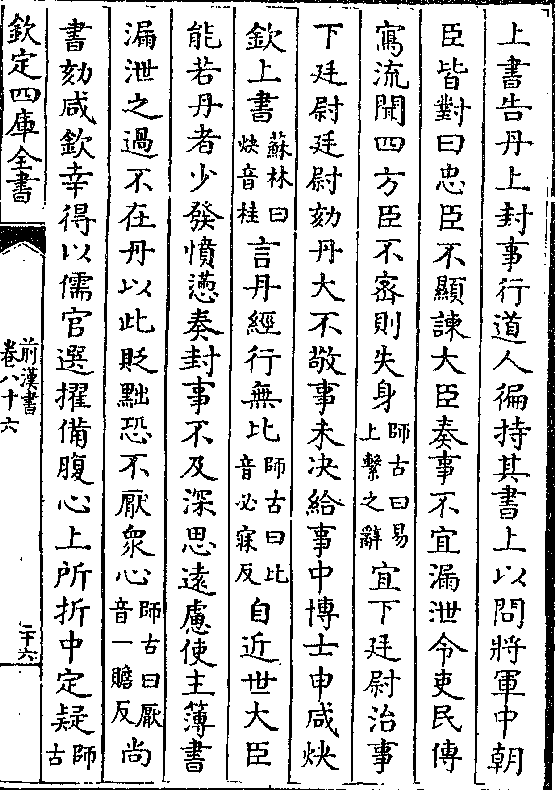 上書告丹上封事行道人徧持其書上以問將軍中朝
臣皆對曰忠臣不顯諫大臣奏事不宜漏泄令吏民傳
寫流聞四方臣不宻則失身師古曰易上繫之辭宜下廷尉治事
下廷尉廷尉劾丹大不敬事未決給事中博士申咸炔
欽上書蘇林曰炔音桂言丹經行無比師古曰比音必寐反自近世大臣
能若丹者少發憤懣奏封事不及深思遠慮使主簿書
漏泄之過不在丹以此貶黜恐不厭衆心師古曰厭音一贍反尚
書劾咸欽幸得以儒官選擢備腹心上所折中定疑師古
欽定四庫全書
前漢書
卷八十六
二十六